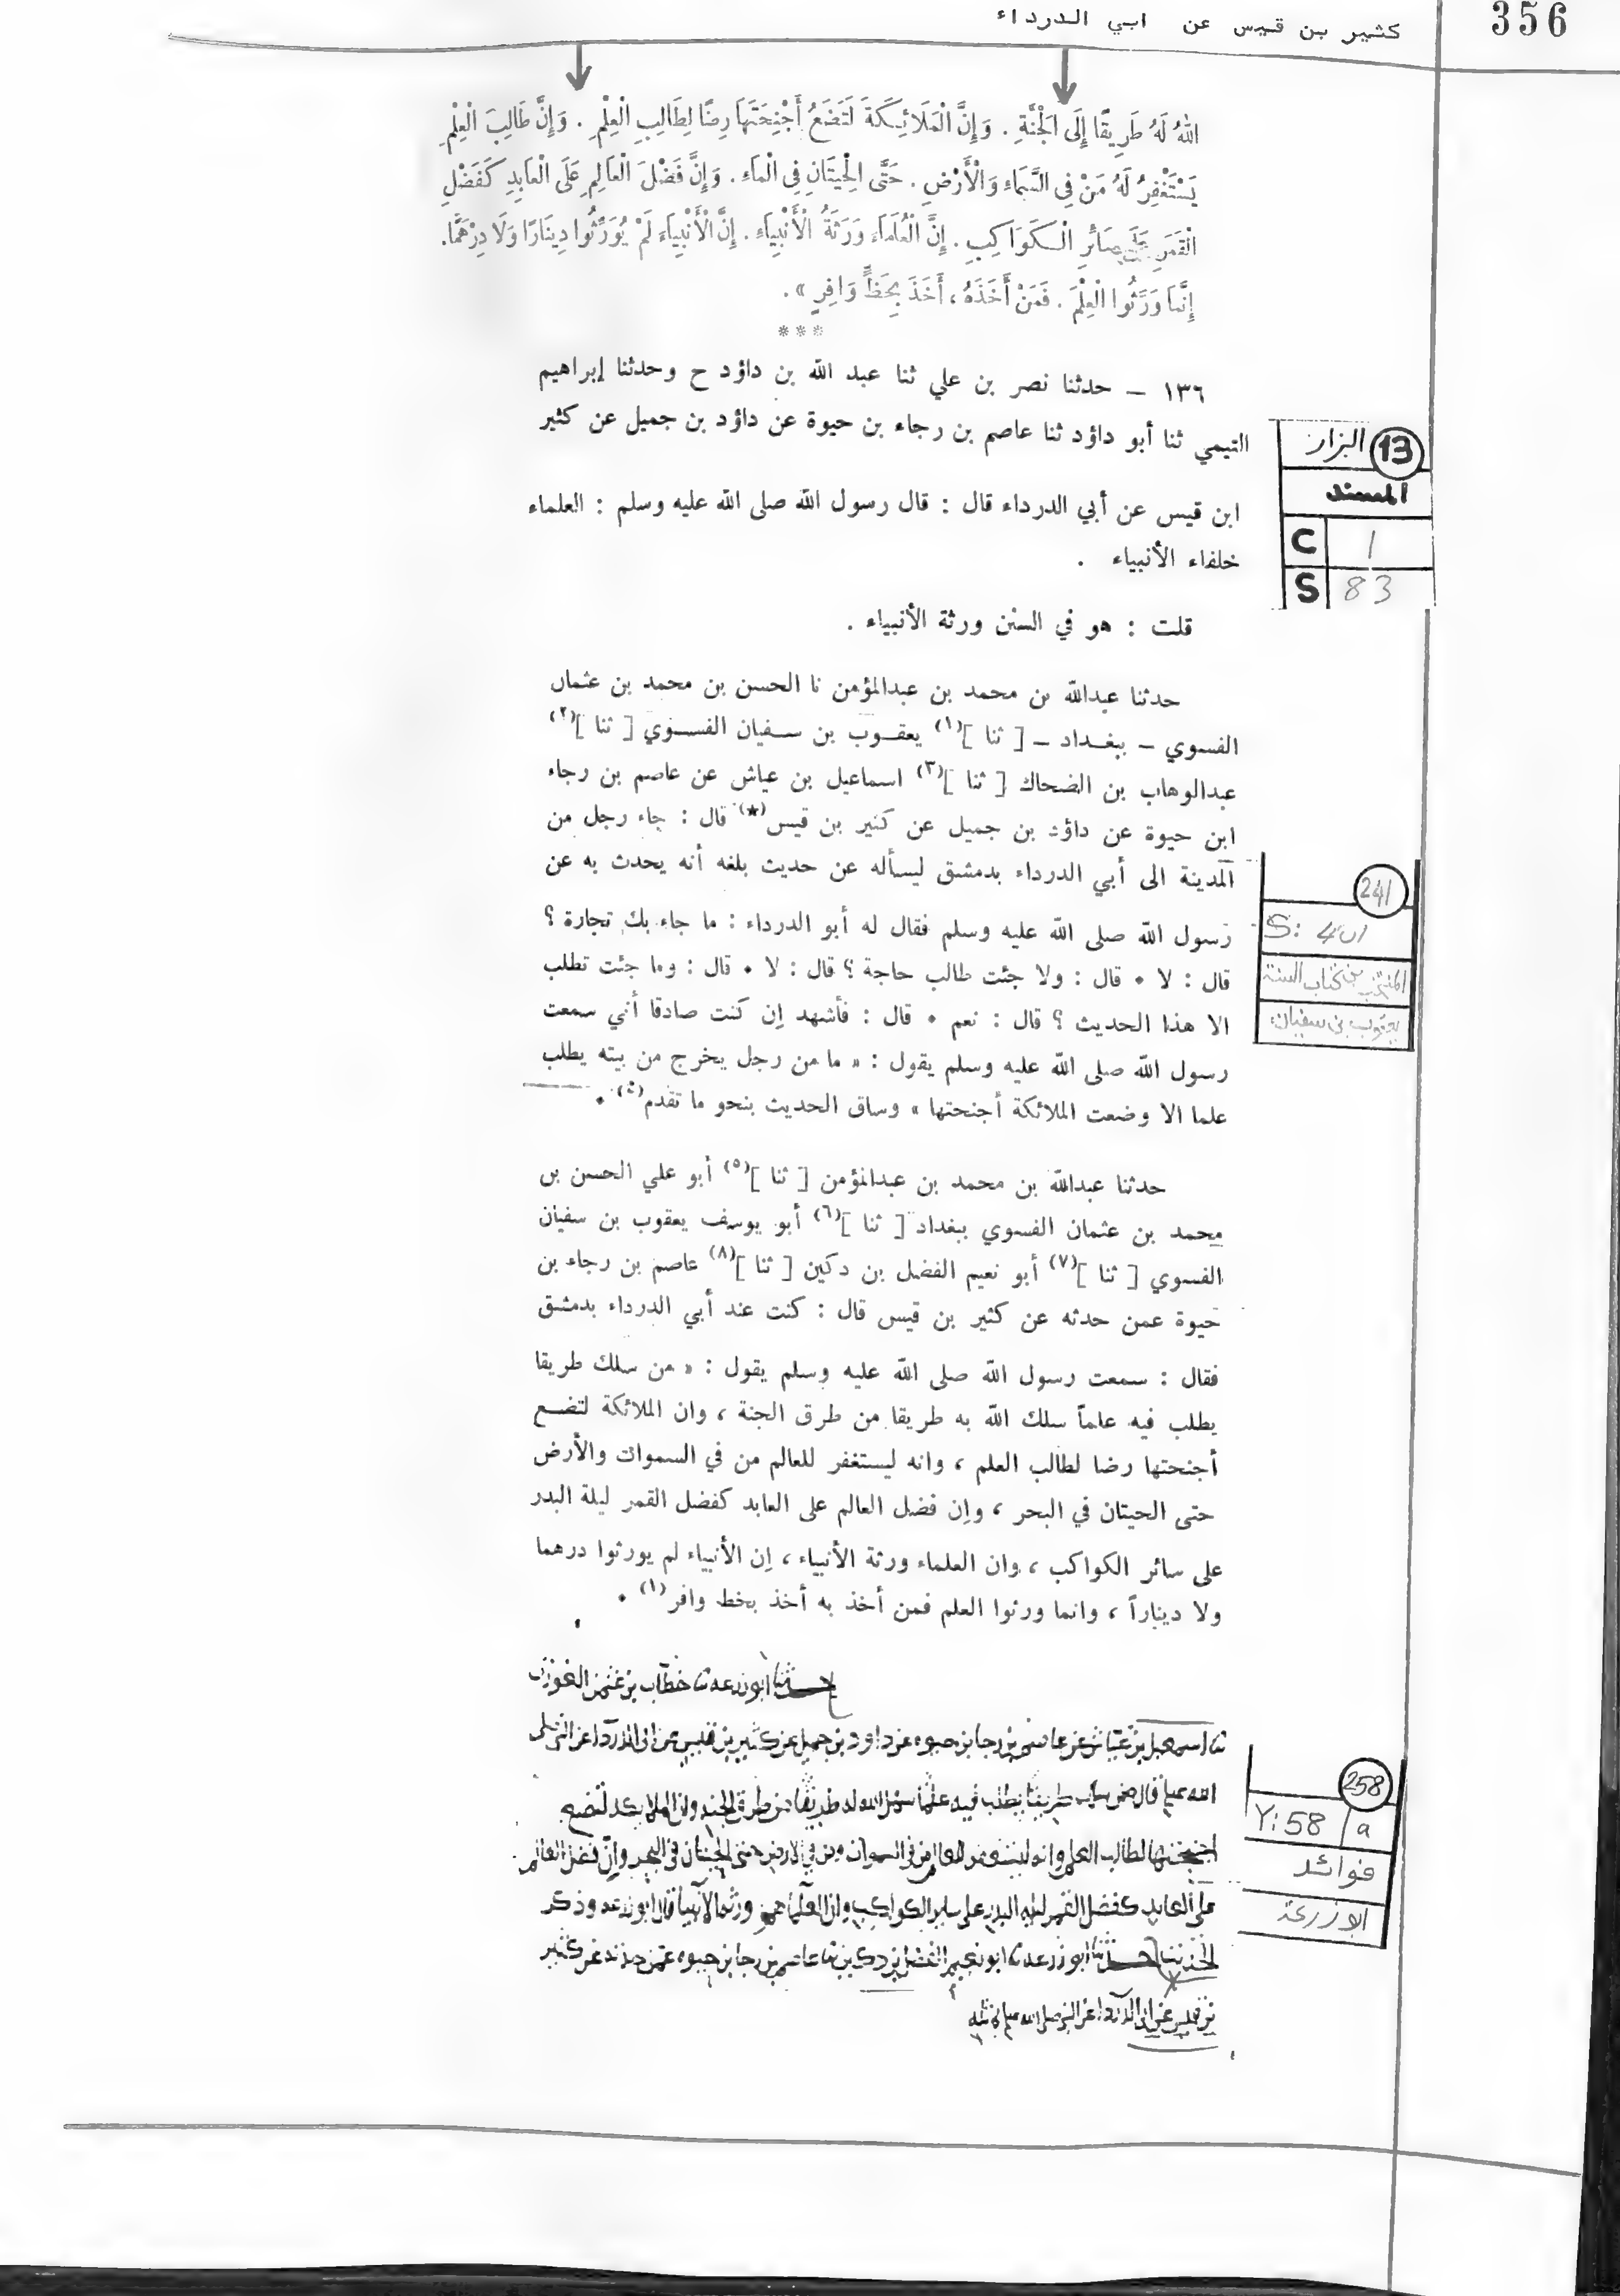 356
كثير بن قيس عن ابي الدرداء
اللهُ لَهُ طَرِيقًا إِلَى الْجَنَّةِ . وَإِنَّ الْمَلَائِكَةَ لَتَضَعُ أَجْنِحَتَهَا رِضًا لِطَالِبِ الْعِلْمِ . وَإِنَّ طَالِبَ الْعِلْمِ
يَسْتَغْفِرُ لَهُ مَنْ فِي السَّمَاءِ وَالْأَرْضِ . حَتَّى الْحِيتَانِ فِي الْمَاءِ . وَإِنَّ فَضْلَ الْعَالِمِ عَلَى الْعَابِدِ كَفَضْلِ
الْقَمَرِ عَلَى سَائِرِ الْكَوَاكِبِ . إِنَّ الْعُلَمَاءَ وَرَثَةُ الْأَنْبِيَاءِ . إِنَّ الْأَنْبِيَاءَ لَمْ يُوَرِّثُوا دِينَارًا وَلَا دِرْهَمًا .
إِنَّمَا وَرَّثُوا الْعِلْمَ . فَمَنْ أَخَذَهُ ، أَخَذَ بِحَظٍّ وَافِرٍ » .
***
١٣٦ – حدثنا نصر بن علي ثنا عبد الله بن داؤد ح وحدثنا إبراهيم
التيمي ثنا أبو داؤد ثنا عاصم بن رجاء بن حيوة عن داؤد بن جميل عن كثير
ابن قيس عن أبي الدرداء قال : قال رسول الله صلى الله عليه وسلم : العلماء
خلفاء الأنبياء .
قلت : هو في السنن ورثة الأنبياء .
13 البزار
المسند
C 1
S 83
حدثنا عبدالله بن محمد بن عبدالمؤمن نا الحسن بن محمد بن عثمان
الفسوي – ببغداد – [ ثنا ](١) يعقوب بن سفيان الفسوي [ ثنا ](٢)
عبدالوهاب بن الضحاك [ ثنا ](٣) اسماعيل بن عياش عن عاصم بن رجاء
ابن حيوة عن داؤد بن جميل عن كثير بن قيس(★) قال : جاء رجل من
المدينة الى أبي الدرداء بدمشق ليسأله عن حديث بلغه أنه يحدث به عن
رسول الله صلى الله عليه وسلم فقال له أبو الدرداء : ما جاء بك تجارة ؟
قال : لا • قال : ولا جئت طالب حاجة ؟ قال : لا • قال : وما جئت تطلب
الا هذا الحديث ؟ قال : نعم • قال : فأشهد إن كنت صادقا أني سمعت
رسول الله صلى الله عليه وسلم يقول : « ما من رجل يخرج من بيته يطلب
علما الا وضعت الملائكة أجنحتها » وساق الحديث بنحو ما تقدم(٤) •
241
S: 401
المنتخب من كتاب السنة
يعقوب بن سفيان
حدثنا عبدالله بن محمد بن عبدالمؤمن [ ثنا ](٥) أبو علي الحسن بن
محمد بن عثمان الفسوي ببغداد [ ثنا ](٦) أبو يوسف يعقوب بن سفيان
الفسوي [ ثنا ](٧) أبو نعيم الفضل بن دكين [ ثنا ](٨) عاصم بن رجاء بن
حيوة عمن حدثه عن كثير بن قيس قال : كنت عند أبي الدرداء بدمشق
فقال : سمعت رسول الله صلى الله عليه وسلم يقول : « من سلك طريقا
يطلب فيه علماً سلك الله به طريقا من طرق الجنة ، وان الملائكة لتضع
أجنحتها رضا لطالب العلم ، وانه ليستغفر للعالم من في السموات والأرض
حتى الحيتان في البحر ، وإن فضل العالم على العابد كفضل القمر ليلة البدر
على سائر الكواكب ، وان العلماء ورثة الأنبياء ، إن الأنبياء لم يورثوا درهما
ولا ديناراً ، وانما ورثوا العلم فمن أخذ به أخذ بخط وافر(١) •
حدثنا ابو زرعه نا خطاب بن عثمن الفوزي
ثنا اسمعيل بن عياش عن عاصم بن رجا بن حيوه عن داود بن جميل عن كثير بن قيس عن ابي الدردا عن النبي صلى
الله عليه قال من سلك طريقا يطلب فيه علما سهل الله له طريقا من طرق الجنه وان الملايكه لتضع
اجنحتها لطالب العلم وانه ليستغفر للعالم من في السموات ومن في الارض حتى الحيتان في البحر وان فضل العالم
على العابد كفضل القمر ليله البدر على ساير الكواكب وان العلما هم ورثه الانبيا قال ابو زرعه وذكر
الحديث حدثنا ابو زرعه نا ابو نعيم الفضل بن دكين نا عاصم بن رجا بن حيوه عمن حدثه عن كثير
بن قيس عن ابي الدردا عن النبي صلى الله عليه مثله
258
Y: 58 / a
فوائد
ابو زرعة